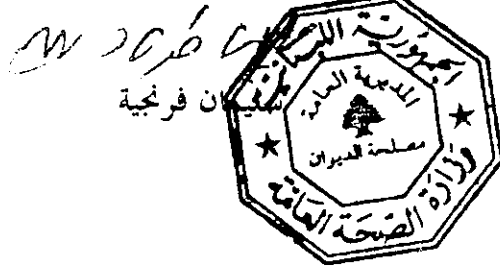 سليمان فرنجية
الجمهورية اللبنانية
المديرية العامة
مصلحة الديوان
وزارة الصحة العامة